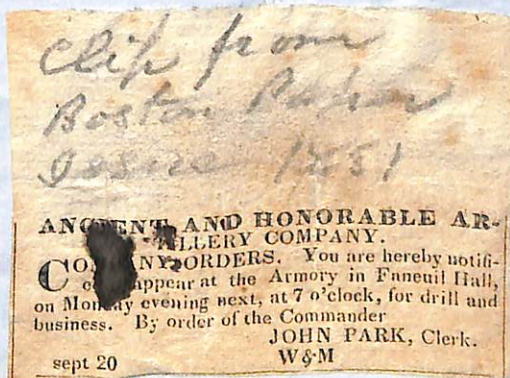 Clip from
Boston Paper
Issue 1851
ANCIENT AND HONORABLE AR-
TILLERY COMPANY.
COMPANY ORDERS. You are hereby notifi-
appear at the Armory in Faneuil Hall,
on Monday evening next, at 7 o'clock, for drill and
business. By order of the Commander
JOHN PARK, Clerk.
sept 20 W&M